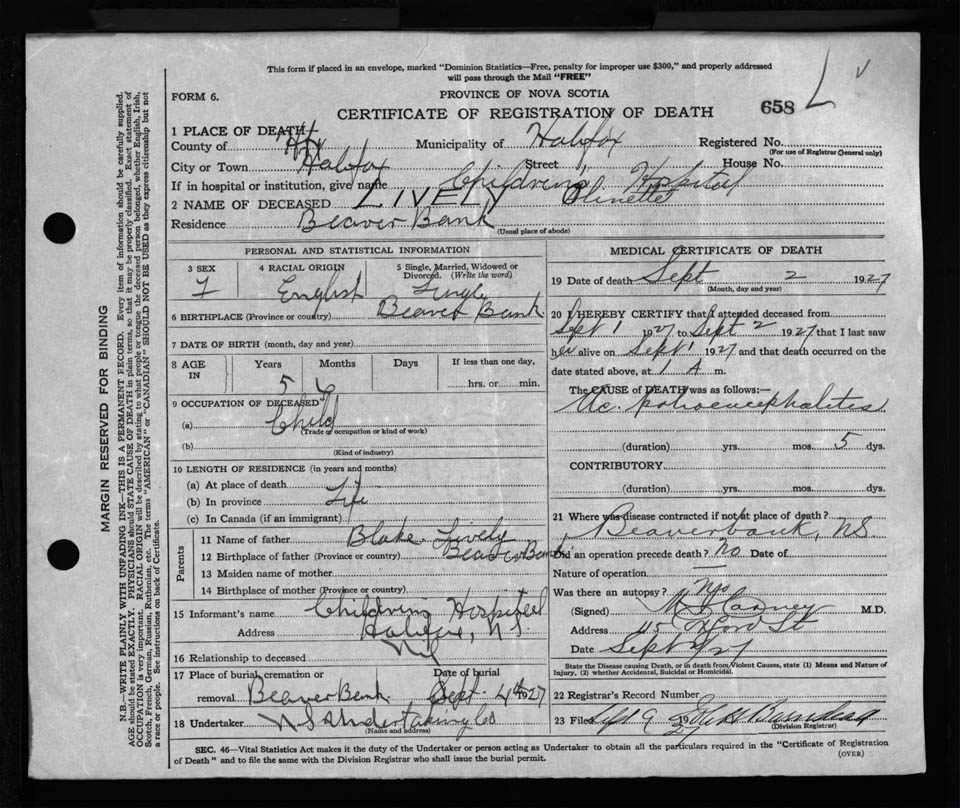 This form if placed in an envelope, marked "Dominion Statistics—Free, penalty for improper use $300," and properly addressed
will pass through the Mail "FREE"
PROVINCE OF NOVA SCOTIA
FORM 6.
CERTIFICATE OF REGISTRATION OF DEATH 658 L v
1 PLACE OF DEATH
County of Hfx Municipality of Halifax Registered No.
(For use of Registrar General only)
City or Town Halifax Street House No.
If in hospital or institution, give name Childrens Hospital
2 NAME OF DECEASED LIVELY Olinette
Residence Beaver Bank
(Usual place of abode)
PERSONAL AND STATISTICAL INFORMATION
3 SEX 4 RACIAL ORIGIN 5 Single, Married, Widowed or
Divorced. (Write the word)
F English Single
6 BIRTHPLACE (Province or country) Beaver Bank
7 DATE OF BIRTH (month, day and year)
8 AGE IN Years Months Days If less than one day,
5 6 hrs. or min.
9 OCCUPATION OF DECEASED
(a) Child
(Trade or occupation or kind of work)
(b)
(Kind of industry)
10 LENGTH OF RESIDENCE (in years and months)
(a) At place of death
(b) In province Life
(c) In Canada (if an immigrant)
Parents
11 Name of father Blake Lively
12 Birthplace of father (Province or country) Beaver Bank
13 Maiden name of mother
14 Birthplace of mother (Province or country)
15 Informant's name Childrens Hospital
Address Halifax, N.S.
16 Relationship to deceased Nil
17 Place of burial, cremation or Date of burial
removal Beaver Bank Sept. 4th 1927
18 Undertaker N S Undertaking Co
(Name and address)
MEDICAL CERTIFICATE OF DEATH
19 Date of death Sept 2 1927
(Month, day and year)
20 I HEREBY CERTIFY that I attended deceased from
Sept 1 1927 to Sept 2 1927 that I last saw
her alive on Sept 1 1927 and that death occurred on the
date stated above, at 1 A m.
The CAUSE OF DEATH was as follows:—
Ac. polioencephalites
(duration) yrs. mos. 5 dys.
CONTRIBUTORY
(duration) yrs. mos. dys.
21 Where was disease contracted if not at place of death?
Beaverbank, N.S.
Did an operation precede death? No Date of
Nature of operation —
Was there an autopsy? No
(Signed) M.D.
Address 45 Oxford St
Date Sept 9/27
State the Disease causing Death, or in death from Violent Causes, state (1) Means and Nature of
Injury, (2) whether Accidental, Suicidal or Homicidal.
22 Registrar's Record Number
23 Filed Sept 9 1927
(Division Registrar)
SEC. 46—Vital Statistics Act makes it the duty of the Undertaker or person acting as Undertaker to obtain all the particulars required in the "Certificate of Registration
of Death" and to file the same with the Division Registrar who shall issue the burial permit.
(OVER)
MARGIN RESERVED FOR BINDING
N.B.—WRITE PLAINLY WITH UNFADING INK—THIS IS A PERMANENT RECORD. Every item of information should be carefully supplied.
AGE should be stated EXACTLY. PHYSICIANS should STATE CAUSE OF DEATH in plain terms, so that it may be properly classified. Exact statement of
OCCUPATION is very important. RACIAL ORIGIN will be described by stating to what people or tongue the deceased person belonged, whether English, Irish,
Scotch, French, German, Russian, Ruthenian, etc. The terms "AMERICAN" or "CANADIAN" SHOULD NOT BE USED as they express citizenship but not
a race or people. See instructions on back of Certificate.